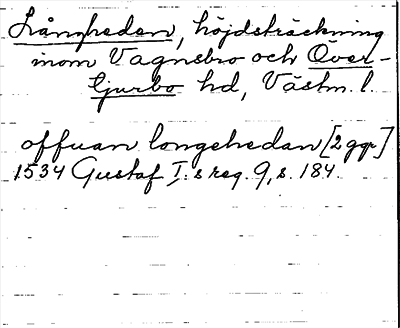 Långheden, höjdsträckning
inom Vagnsbro och Över-
Tjurbo hd, Västm. l.
offuan longehedan [2 ggr]
1534 Gustaf I:s reg. 9, s. 184.